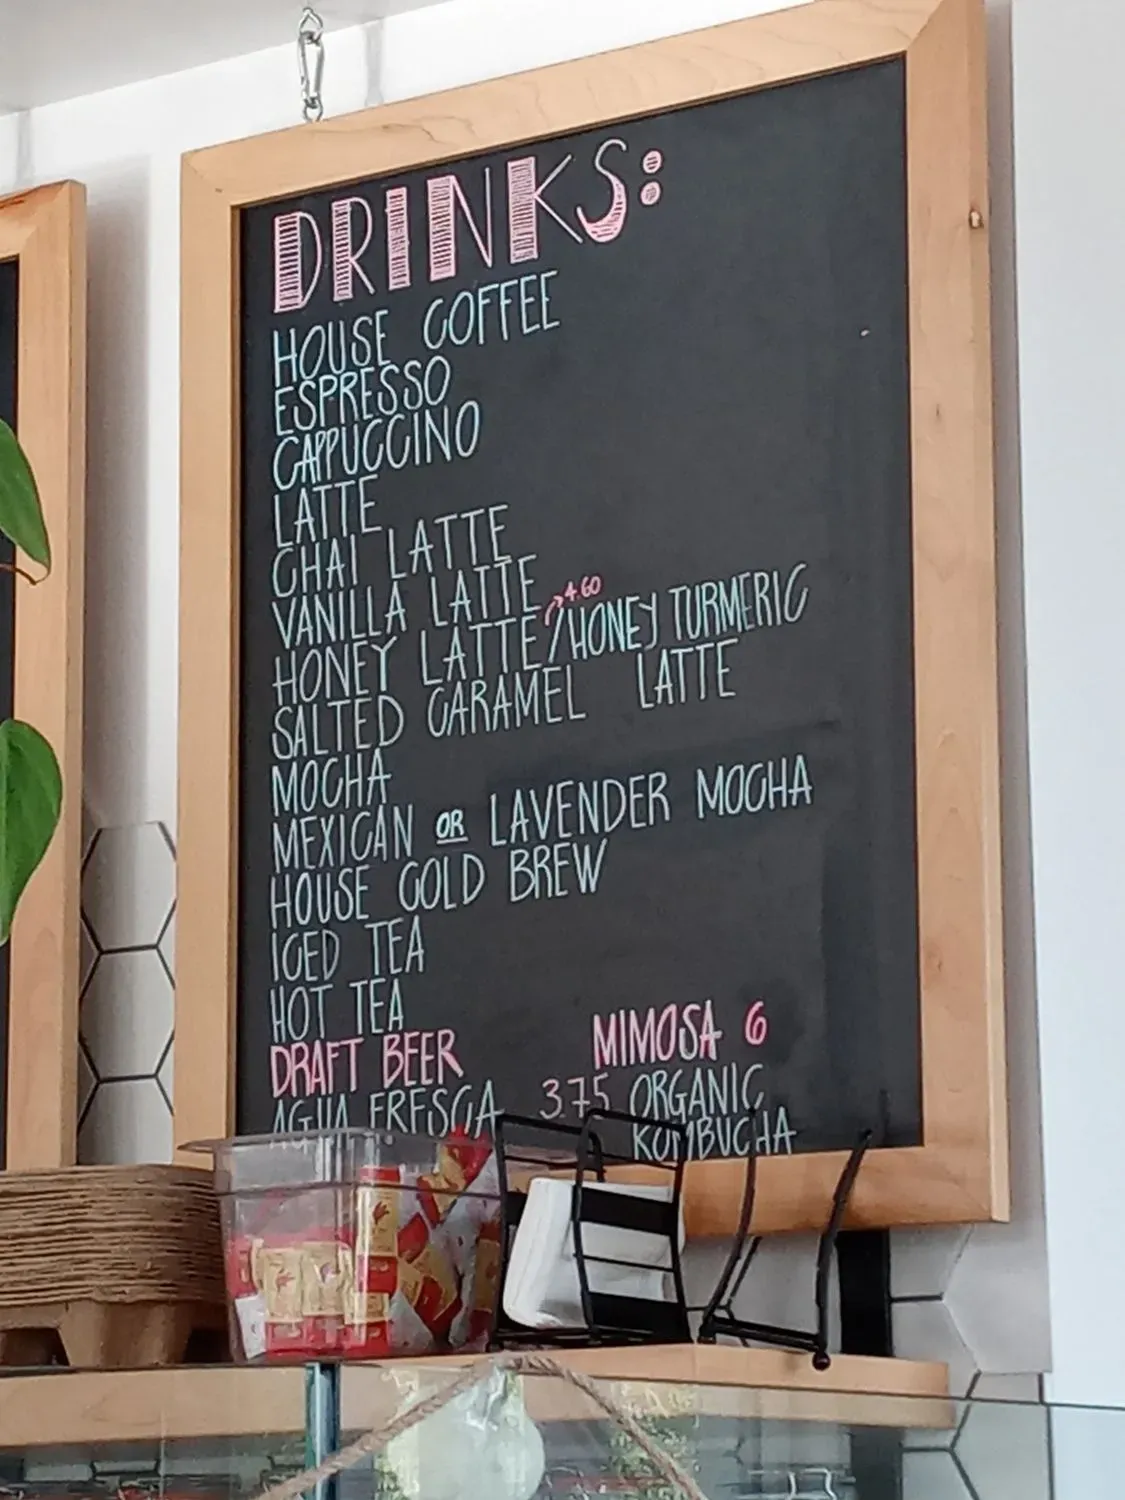 DRINKS:
HOUSE COFFEE
ESPRESSO
CAPPUCCINO
LATTE
CHAI LATTE
VANILLA LATTE
4.60
HONEY LATTE/HONEY TURMERIC
SALTED CARAMEL LATTE
MOCHA
MEXICAN OR LAVENDER MOCHA
HOUSE COLD BREW
ICED TEA
HOT TEA
DRAFT BEER MIMOSA 6
AGUA FRESCA 3.75 ORGANIC
KOMBUCHA